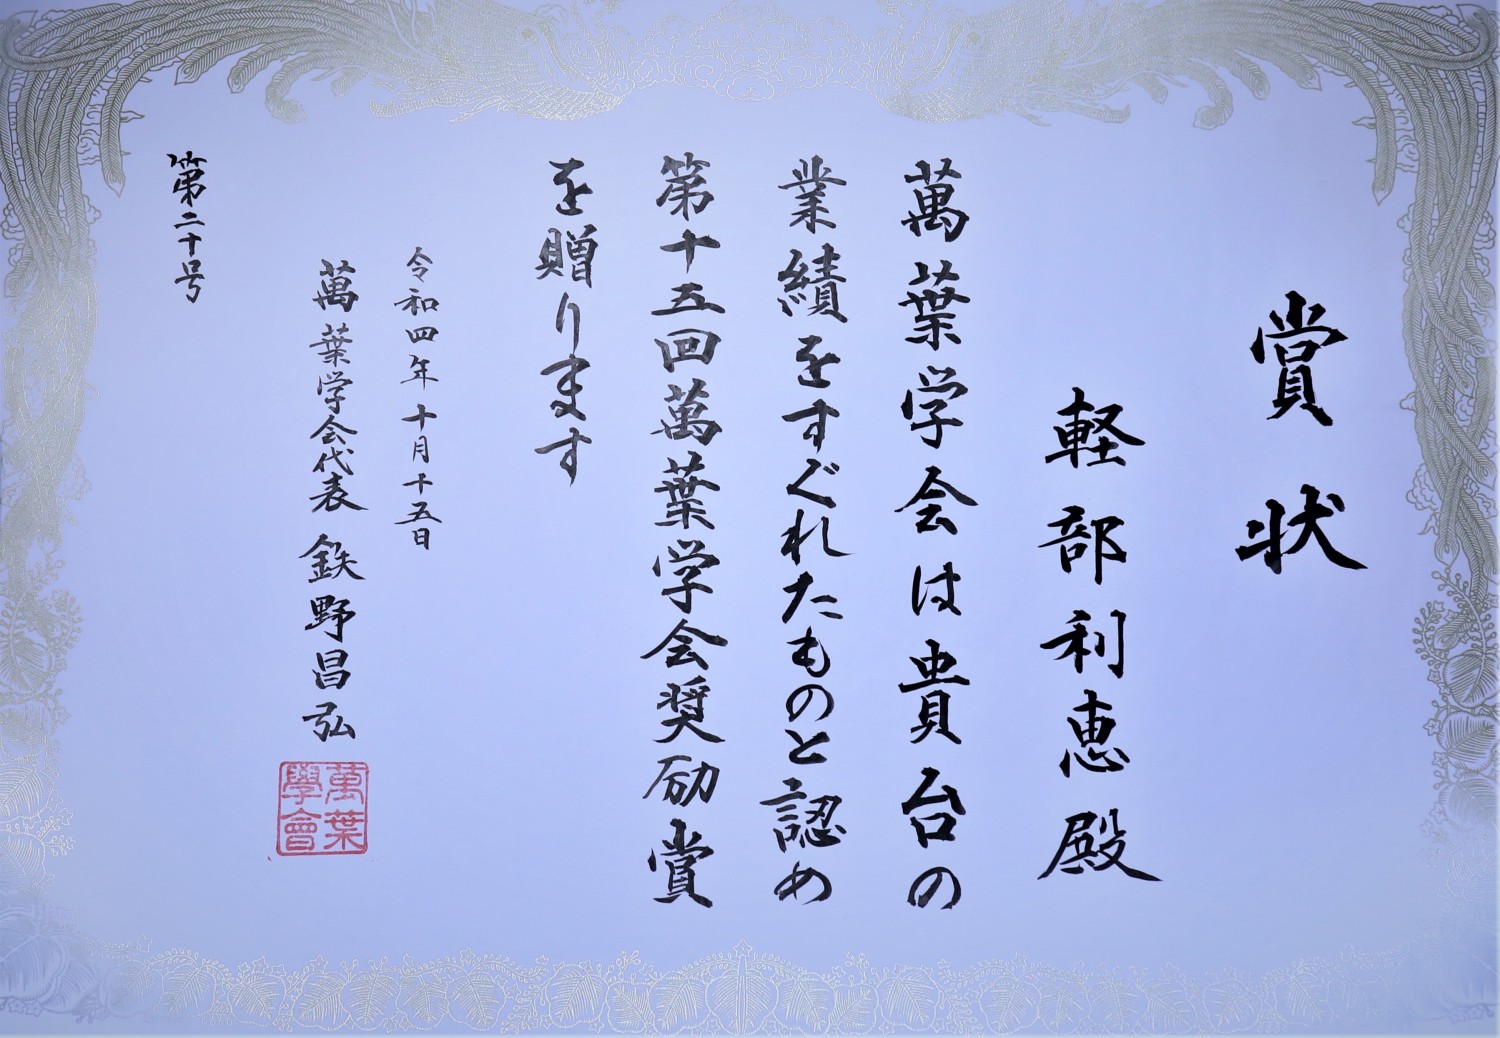 賞状
軽部利恵殿
萬葉学会は貴台の
業績をすぐれたものと認め
第十五回萬葉学会奨励賞
を贈ります
令和四年十月十五日
萬葉学会代表 鉄野昌弘
萬葉
學會
第二十号